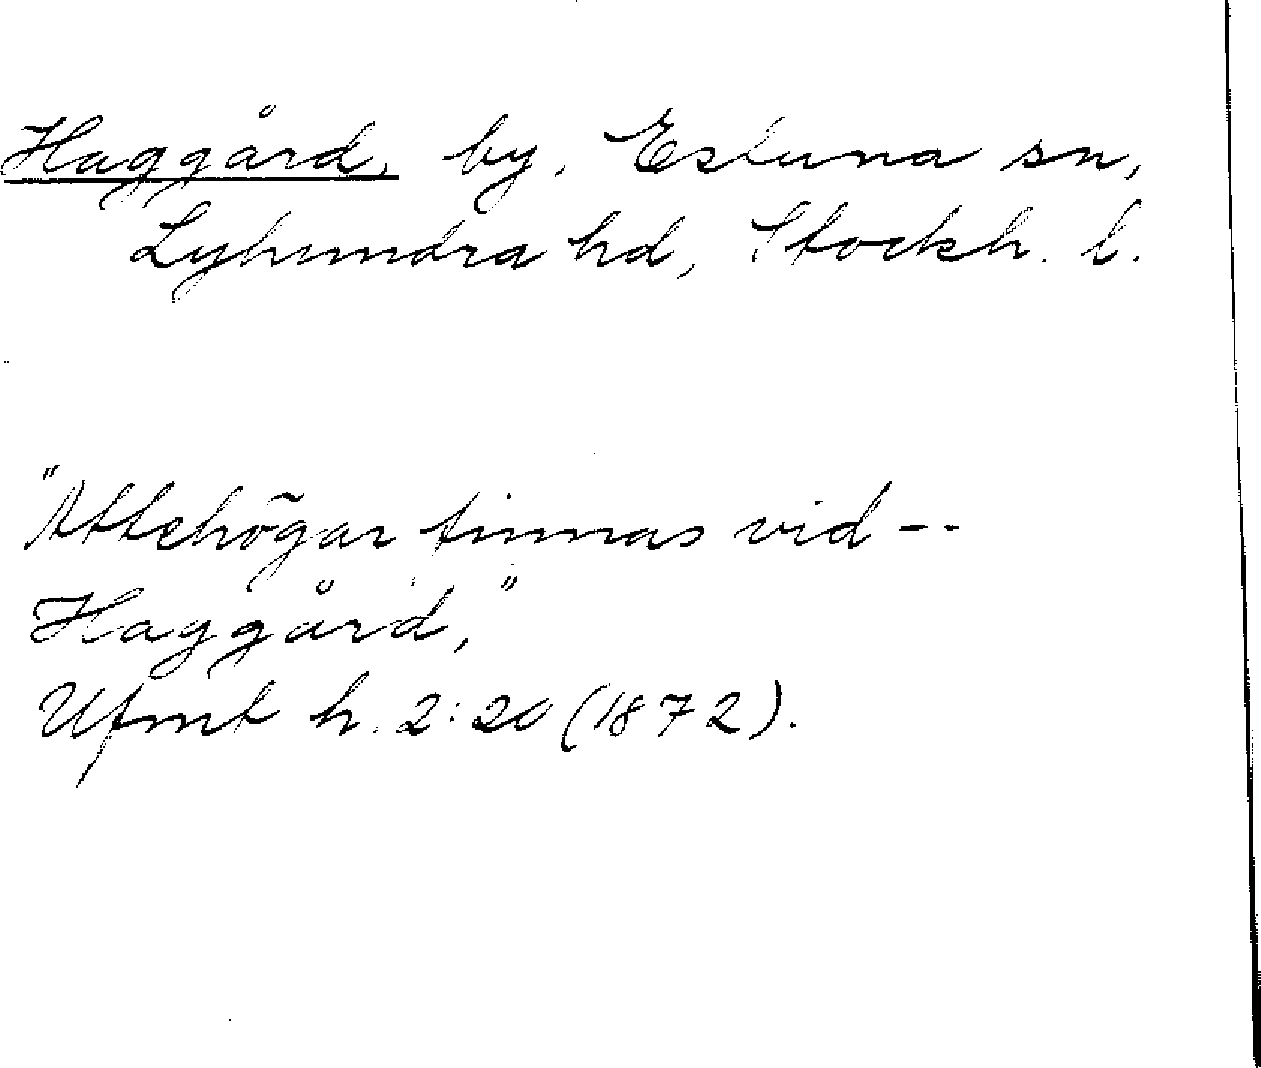 Haggård, by, Estuna sn,
Lyhundra hd, Stockh. l.
"Ättehögar finnas vid --
Haggård,"
Ufmt h. 2:20 (1872).